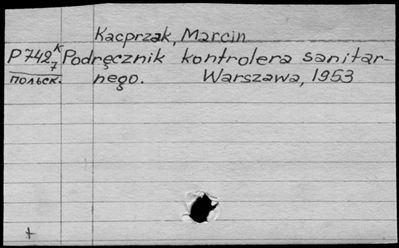 Kacprzak, Marcin
P742 K/7 Podręcznik kontrolera sanitar-
польск. nego. Warszawa, 1953
+